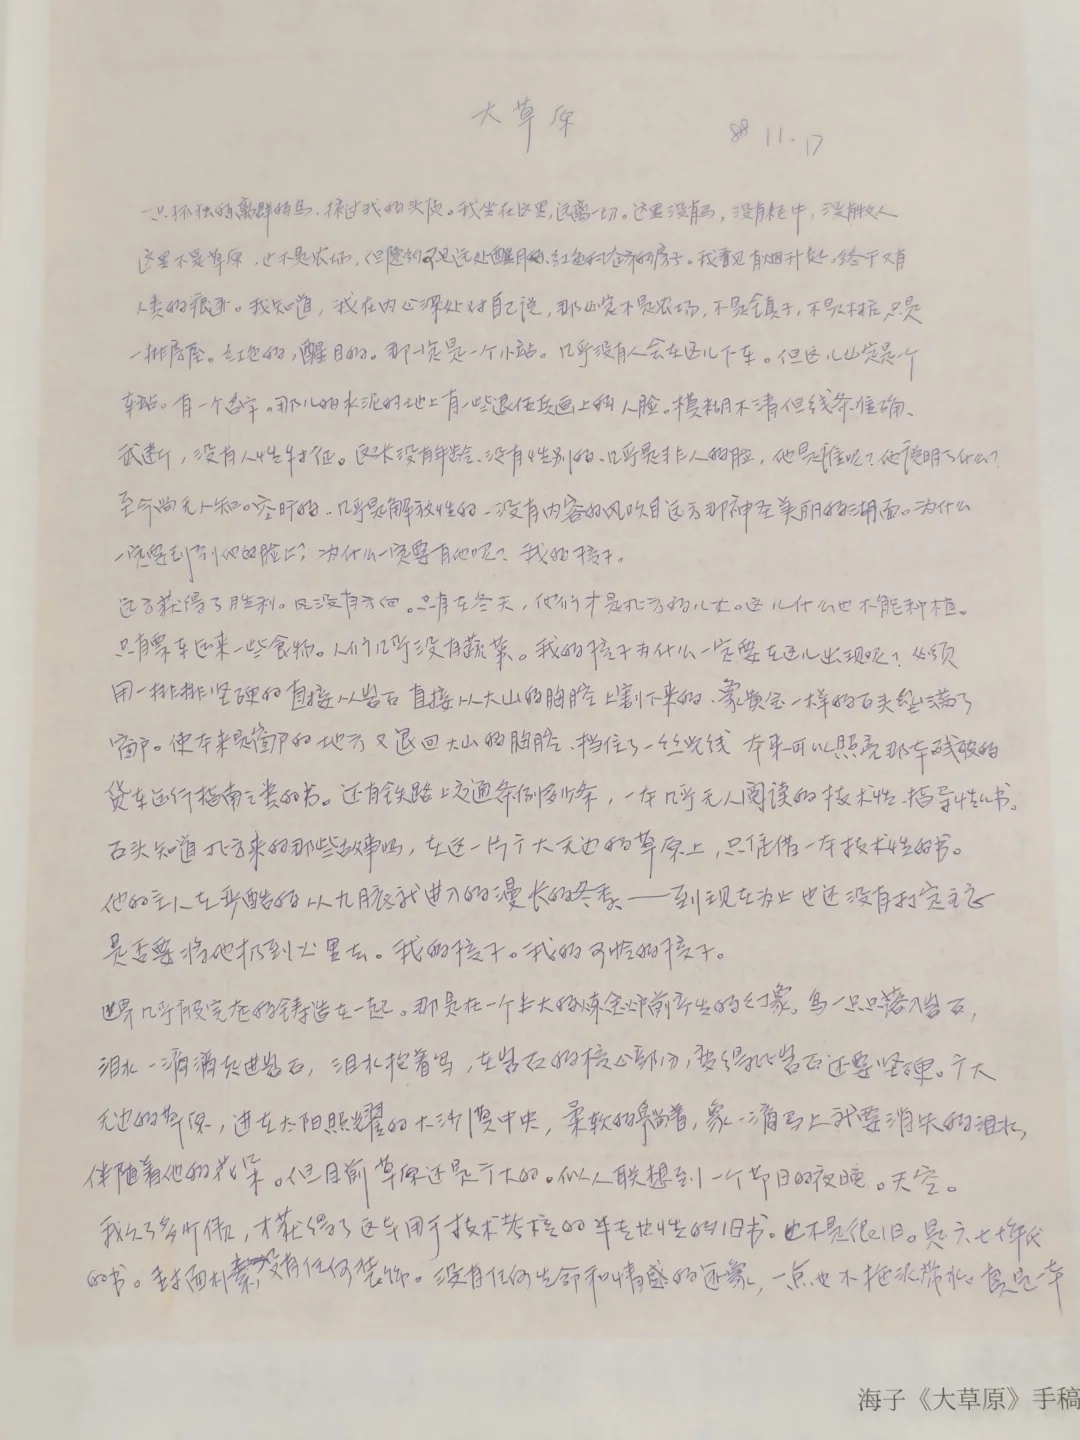 大草原
88 11.17
一只孤独的离群的鸟,掠过我的头顶。我坐在这里,远离一切。这里没有马,没有牦牛,没有牧人
这里不是草原,也不是农场,但隐约可见远处醒目的、红色的房子。我看见有烟升起。终于又有
人类的痕迹。我知道,我在内心深处对自己说,那必定不是农场,不是镇子,不是村庄 只是
一排房屋。红色的,醒目的。那一定是一个小站。几乎没有人会在这儿下车。但这儿必定是个
车站。有一个名字。那儿的水泥的地上有一些退伍兵画上的人脸。模糊不清但线条准确、
武断,没有人性特征。这张没有年龄、没有性别的、几乎是非人的脸,他是谁呢?他说明了什么?
至今尚无人知。空旷的、几乎是解放性的、没有内容的风吹自远方那神圣美丽的湖面。为什么
一定要到他的脸上?为什么一定要有他呢?我的孩子。
远方获得了胜利。风没有方向。只有在冬天,他们才是北方的儿女。这儿什么也不能种植。
只有票车运来一些食物。人们几乎没有蔬菜。我的孩子为什么一定要在这儿出现呢?必须
用一排排坚硬的直接从岩石 直接从大山的胸膛上割下来的、象黄金一样的石头 满了
窗户。使本来是窗户的地方又退回大山的胸膛、挡住了一丝光线 本来可以照亮那本残破的
货车运行指南之类的书。还有铁路上交通条例多少条,一本几乎无人阅读的技术性、指导性书。
石头知道北方来的那些故事吗,在这一片广大无边的草原上,只凭借一本技术性的书。
他的主人在严酷的从九月底就进入的漫长的冬季、——到现在为止也还没有打定主意
是否要将他扔到火里去。我的孩子。我的可怜的孩子。
世界几乎被完整的铸造在一起。那是在一个半大的炼金炉前产生的幻象。鸟一只只落入岩石,
泪水一滴滴走进岩石,泪水抱着鸟,在岩石的核心部分,变得比岩石还要坚硬。广大
无边的草原,进在太阳照耀的大沙漠中央,柔软的,象一滴马上就要消失的泪水,
伴随着他的。但目前草原还是广大的。似人联想到一个节日的夜晚。天空。
我欠了多少债,才获得了这本用于技术考核的半专业性的旧书。也不是很旧。是六七十年代
的书。封面朴素没有任何装饰。没有任何生命和情感的迹象,一点也不拖泥带水。真是一本
海子《大草原》手稿